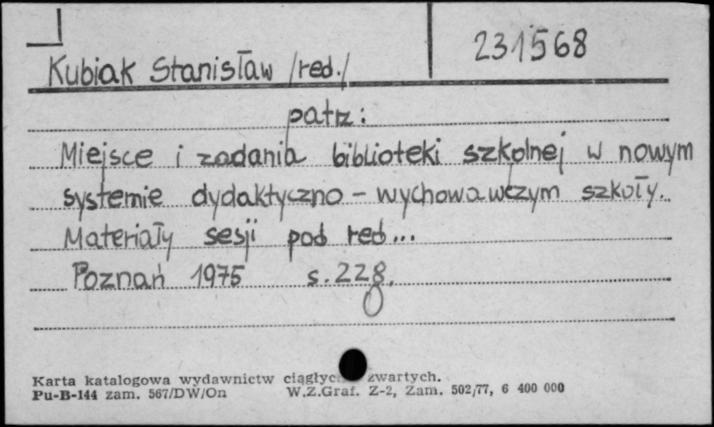 Kubiak Stanisław /red./ 231568
patrz:
Miejsce i zadania biblioteki szkolnej w nowym
systemie dydaktyczno - wychowawczym szkoły.
Materiały sesji pod red...
Poznań 1975 s. 228.
Karta katalogowa wydawnictw ciągłyc zwartych.
Pu-B-144 zam. 567/DW/On W.Z.Graf. Z-2, Zam. 502/77, 6 400 000